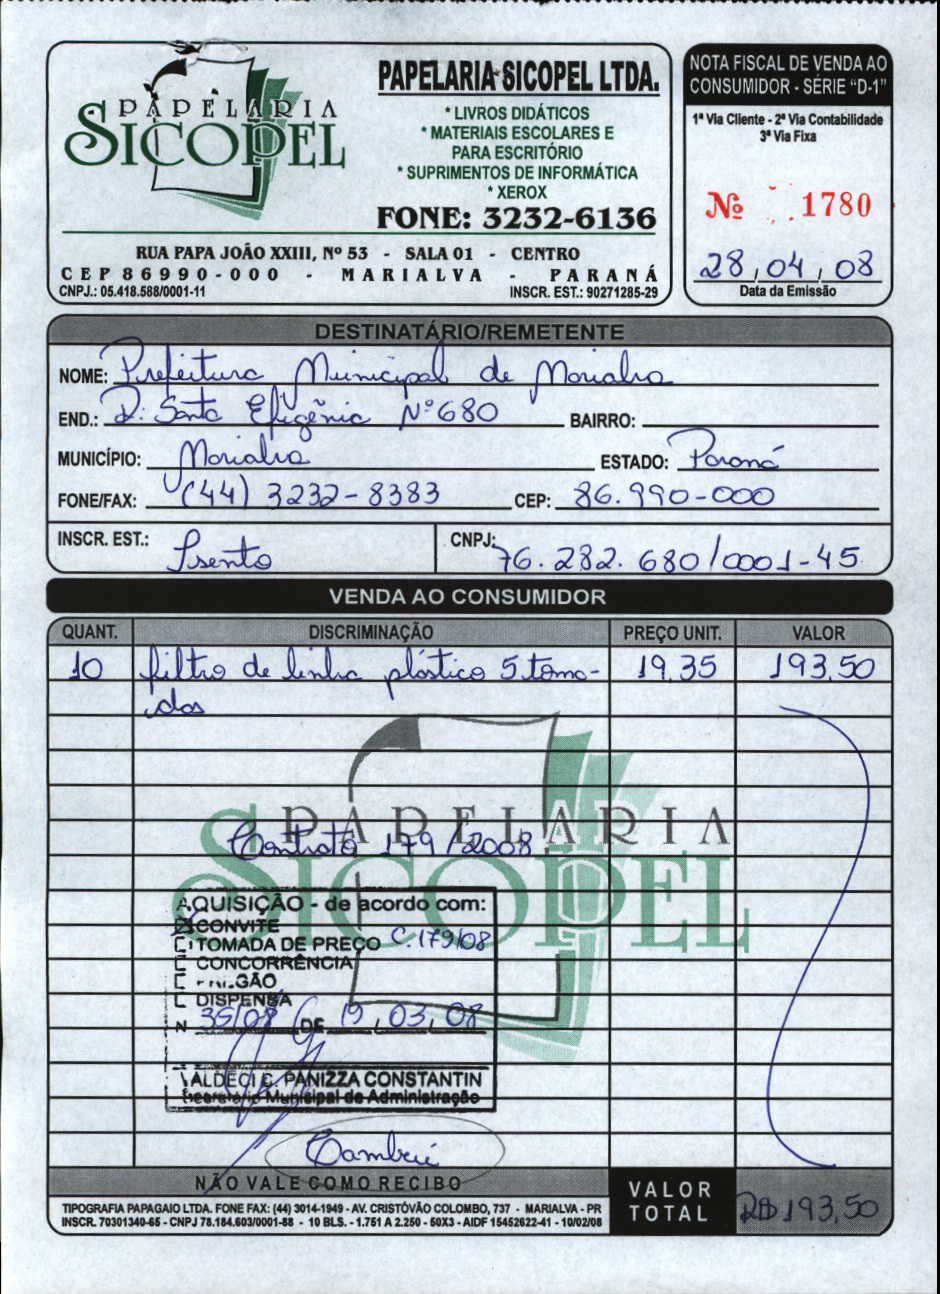 PAPELARIA
SICOPEL
PAPELARIA SICOPEL LTDA.
* LIVROS DIDÁTICOS
* MATERIAIS ESCOLARES E
PARA ESCRITÓRIO
* SUPRIMENTOS DE INFORMÁTICA
* XEROX
FONE: 3232-6136
RUA PAPA JOÃO XXIII, Nº 53 - SALA 01 - CENTRO
CEP 86990-000 - MARIALVA - PARANÁ
CNPJ.: 05.418.588/0001-11 INSCR. EST.: 90271285-29
NOTA FISCAL DE VENDA AO
CONSUMIDOR - SÉRIE "D-1"
1ª Via Cliente - 2ª Via Contabilidade
3ª Via Fixa
Nº 1780
28/04/08
Data da Emissão
DESTINATÁRIO/REMETENTE
NOME: Prefeitura Municipal de Marialva
END.: R: Santa Efigênia Nº 680 BAIRRO:
MUNICÍPIO: Marialva ESTADO: Paraná
FONE/FAX: (44) 3232-8383 CEP: 86.990-000
INSCR. EST.: Isento CNPJ: 76.282.680/0001-45
VENDA AO CONSUMIDOR
QUANT. DISCRIMINAÇÃO PREÇO UNIT. VALOR
10 filtro de linha plástico 5 toma- 19,35 193,50
das
PAPELARIA
SICOPEL
Contrato 179/2008
AQUISIÇÃO - de acordo com:
CONVITE
TOMADA DE PREÇO C. 179/08
CONCORRÊNCIA
PREGÃO
DISPENSA
N 35/08 DE 19, 03, 08
VALDECI C. PANIZZA CONSTANTIN
Secretário Municipal de Administração
NÃO VALE COMO RECIBO
VALOR
TOTAL
R$ 193,50
TIPOGRAFIA PAPAGAIO LTDA. FONE FAX: (44) 3014-1949 - AV. CRISTÓVÃO COLOMBO, 737 - MARIALVA - PR
INSCR. 70301340-65 - CNPJ 78.184.603/0001-88 - 10 BLS. - 1.751 A 2.250 - 50X3 - AIDF 15452622-41 - 10/02/08